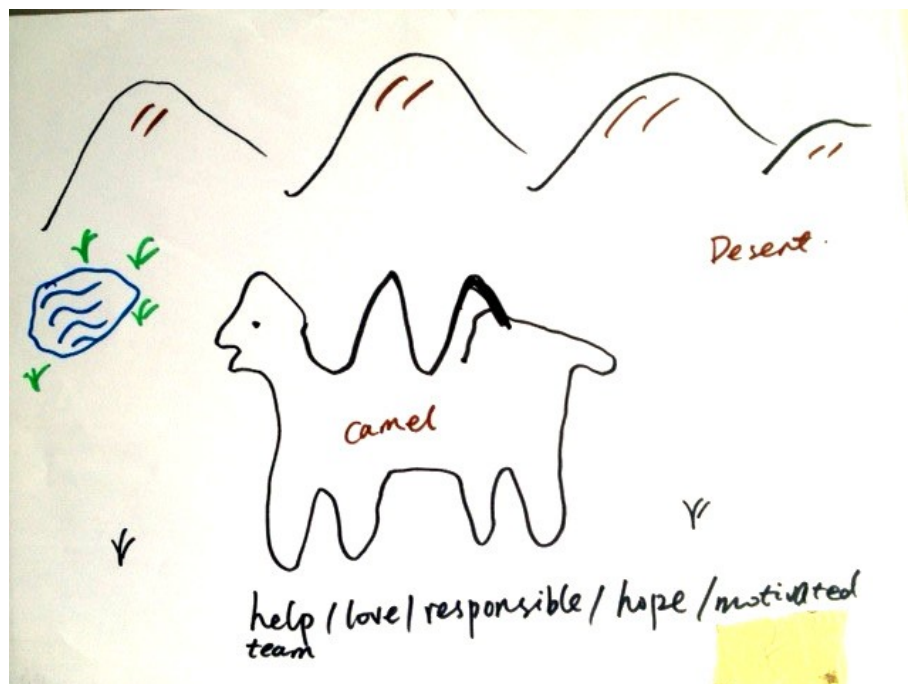 Desert.
camel
help / love / responsible / hope / motivated
team